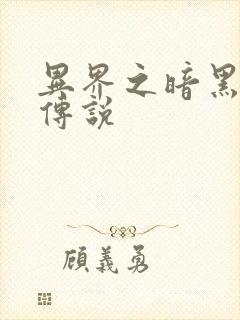 異界之暗黑
傳說
顧義勇